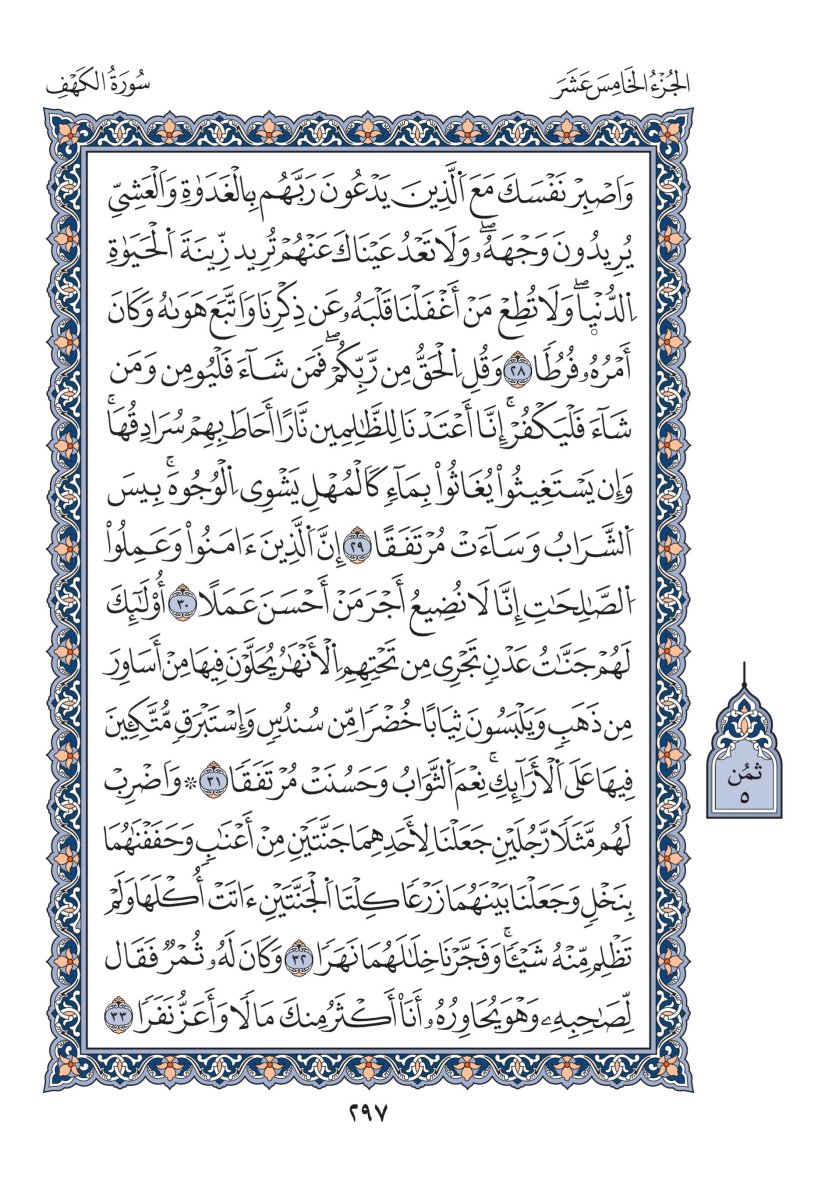 الجُزْءُ الخَامِسَ عَشَرَ
سُورَةُ الكَهْفِ
وَاَصْبِرْ نَفْسَكَ مَعَ اَلَّذِينَ يَدْعُونَ رَبَّهُم بِالْغَدَوٰةِ وَالْعَشِيِّ
يُرِيدُونَ وَجْهَهُۥۖ وَلَا تَعْدُ عَيْنَاكَ عَنْهُمْ تُرِيد زِّينَةَ اَلْحَيَوٰةِ
اِلدُّنْيٜاۖ وَلَا تُطِعْ مَنْ أَغْفَلْنَا قَلْبَهُۥ عَن ذِكْرِنَا وَاتَّبَعَ هَوَىٰهُ وَكَانَ
أَمْرُهُۥ فُرُطًا ٢٨ وَقُلِ اِلْحَقُّ مِن رَّبِّكُمْۖ فَمَن شَآءَ فَلْيُومِن وَمَن
شَآءَ فَلْيَكْفُرْۚ إِنَّا أَعْتَدْنَا لِلظَّٰلِمِين نَّارًا أَحَاطَ بِهِمْ سُرَادِقُهَاۚ
وَإِن يَسْتَغِيثُواْ يُغَاثُواْ بِمَآءٖ كَالْمُهْلِ يَشْوِي اِلْوُجُوهَۚ بِيسَ
اَلشَّرَابُ وَسَآءَتْ مُرْتَفَقًا ٢٩ إِنَّ اَلَّذِينَ ءَامَنُواْ وَعَمِلُواْ
اُلصَّٰلِحَٰتِ إِنَّا لَا نُضِيعُ أَجْرَ مَنْ أَحْسَنَ عَمَلًا ٣٠ أُوْلَٰٓئِكَ
لَهُمْ جَنَّٰتُ عَدْنٖ تَجْرِي مِن تَحْتِهِمِ اِلْأَنْهَٰرُ يُحَلَّوْنَ فِيهَا مِنْ أَسَاوِرَ
مِن ذَهَبٖ وَيَلْبَسُونَ ثِيَابًا خُضْرٗا مِّن سُندُسٖ وَإِسْتَبْرَقٖ مُّتَّكِـِٔينَ
فِيهَا عَلَى اَلْأَرَآئِكِۚ نِعْمَ اَلثَّوَابُ وَحَسُنَتْ مُرْتَفَقٗا ٣١ ۞ وَاَضْرِبْ
لَهُم مَّثَلٗا رَّجُلَيْنِ جَعَلْنَا لِأَحَدِهِمَا جَنَّتَيْنِ مِنْ أَعْنَٰبٖ وَحَفَفْنَٰهُمَا
بِنَخْلٖ وَجَعَلْنَا بَيْنَهُمَا زَرْعٗا كِلْتَا اَلْجَنَّتَيْنِ ءَاتَتْ أُكْلَهَا وَلَمْ
تَظْلِم مِّنْهُ شَيْـٔٗاۚ وَفَجَّرْنَا خِلَٰلَهُمَا نَهَرٗا ٣٢ وَكَانَ لَهُۥ ثُمْرٞ فَقَال
لِّصَٰحِبِهِۦ وَهْوَ يُحَاوِرُهُۥ أَنَا أَكْثَرُ مِنكَ مَالٗا وَأَعَزُّ نَفَرٗا ٣٣
ثمُن
٥
٢٩٧